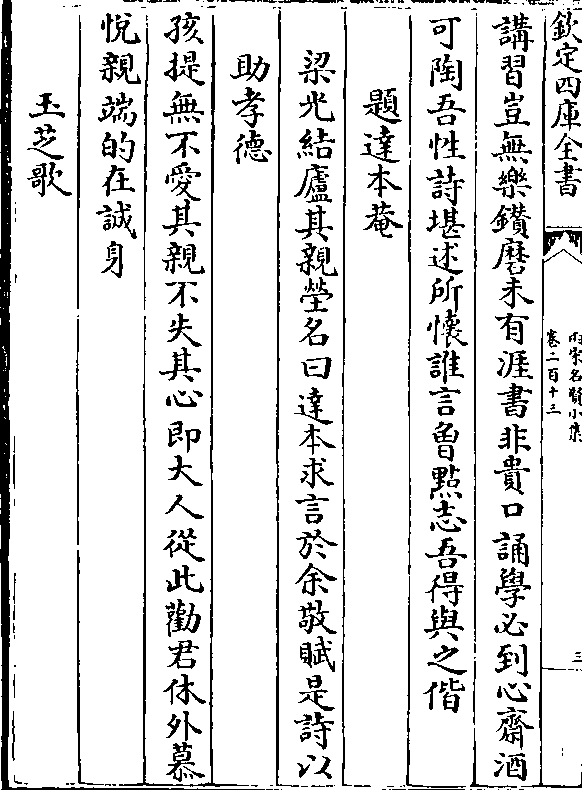 欽定四庫全書
兩宋名賢小集
卷二百十三
三
講習豈無樂鑽磨未有涯書非貴口誦學必到心齋酒
可陶吾性詩堪述所懷誰言曾點志吾得與之偕
題達本菴
梁光結廬其親塋名曰達本求言於余敬賦是詩以
助孝德
孩提無不愛其親不失其心即大人從此勸君休外慕
悅親端的在誠身
玉芝歌